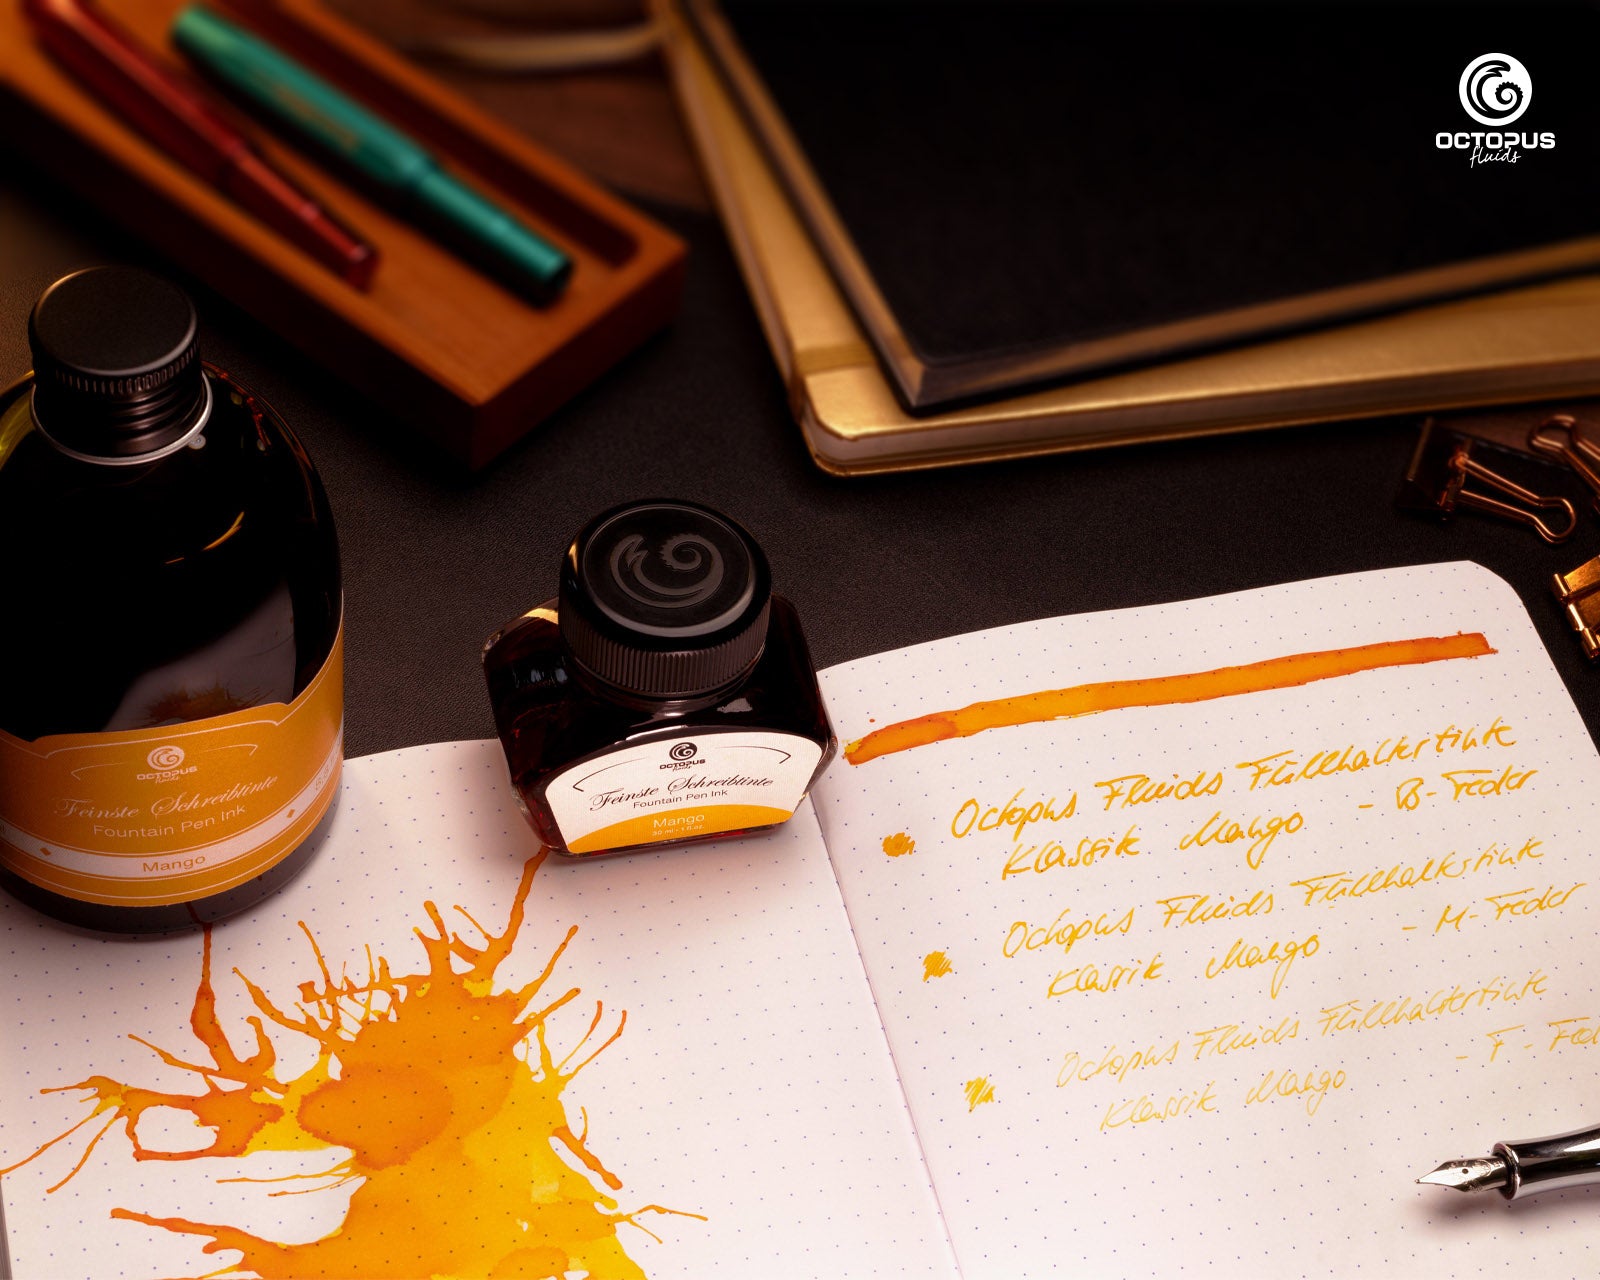 OCTOPUS
fluids
OCTOPUS
fluids
Feinste Schreibtinte
Fountain Pen Ink
Mango
OCTOPUS
fluids
Feinste Schreibtinte
Fountain Pen Ink
Mango
30 ml - 1 fl. oz.
Octopus Fluids Füllhaltertinte
Klassik Mango - B-Feder
Octopus Fluids Füllhaltertinte
Klassik Mango - M-Feder
Octopus Fluids Füllhaltertinte
Klassik Mango - F-Fed